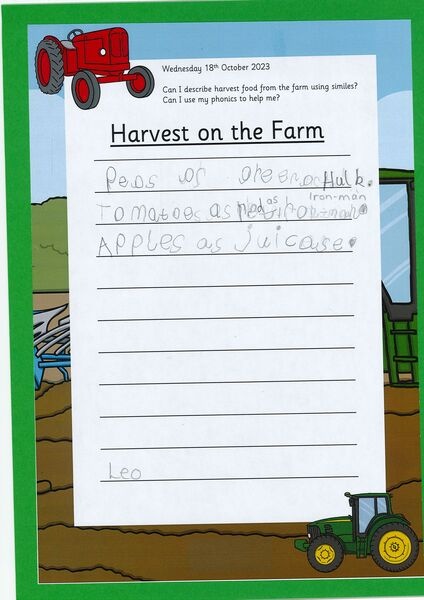 Wednesday 18th October 2023
Can I describe harvest food from the farm using similes?
Can I use my phonics to help me?
Harvest on the Farm
Peas as green as Hulk.
Iron-man
Tomatoes as red as
Apples as juicase.
Leo